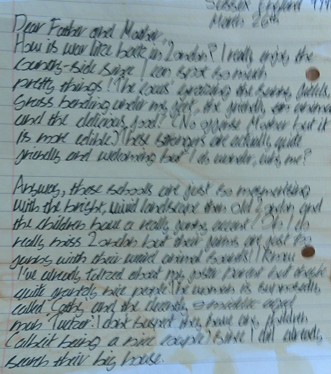 Sussex, England
March 26th
Dear Father and Mother,
How is war like back in London? I really enjoy the
country-side since I can spot so much
pretty things! The cows grazing the
grass bending under my feet, the friendly
and the delicious food! (No offense Mother but it
its more edible) These strangers are actually quite
friendly and welcoming but I do wonder, why me?
Anyway, these schools are just so mesmerising
with the bright, vivid landscape than old London and
the children have a really funny accent! Oh! I do
really miss London but their games are just too
funny with their weird animal sounds! I know
I've already talked about my foster parent but
quite nice people! The woman is
called Cathy and the
. I don't suspect they have any children
(albeit being a nice couple) since I did already
search their big house.